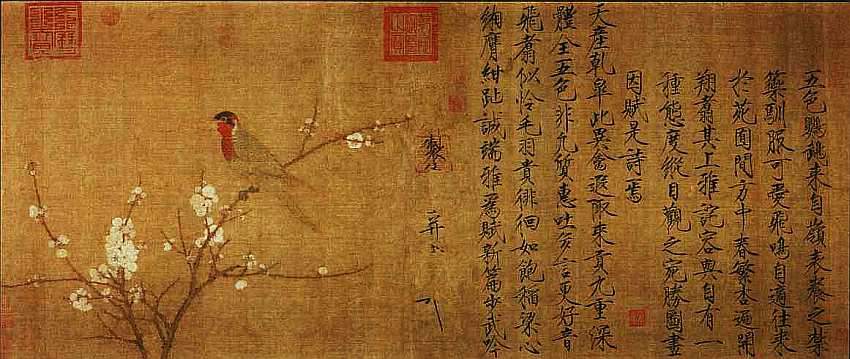 五色鸚鵡來自嶺表養之禁
籞馴服可愛飛鳴自適往來
於苑囿間方中春繁杏遍開
翔翥其上雅詫容與自有一
種態度縱目觀之宛勝圖畫
因賦是詩焉
天產乾皋此異禽遐陬來貢九重深
體全五色非凡質惠吐多言更好音
飛翥似憐毛羽貴徘徊如飽稻粱心
緗膺紺趾誠端雅爲賦新篇步武吟
製
并書